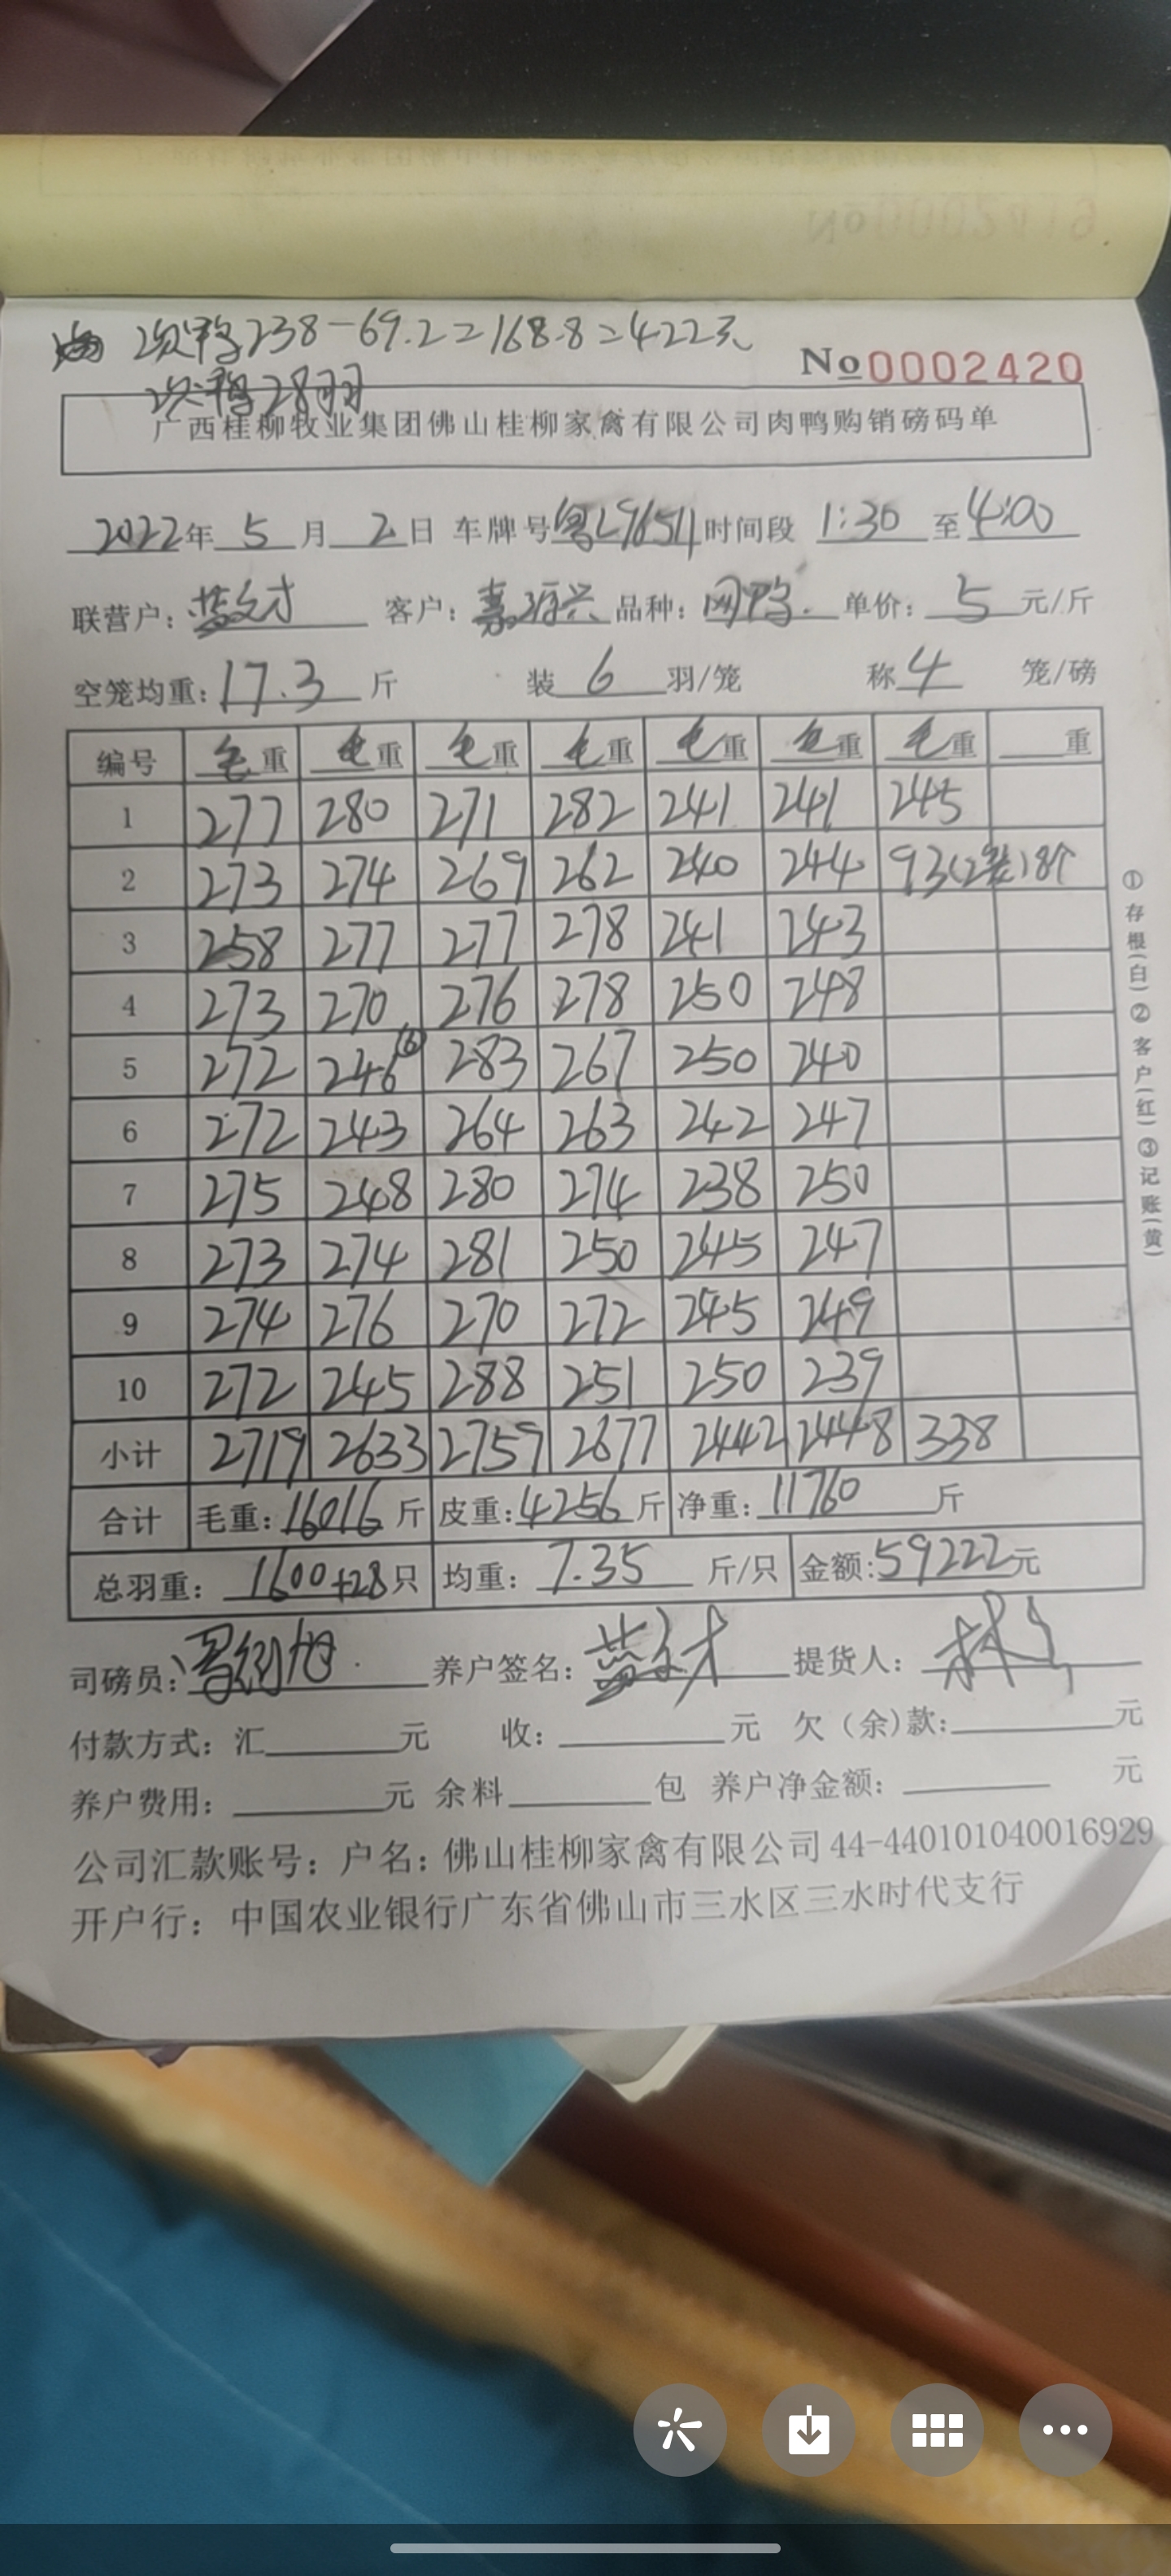 次鸭238-69.2=168.8=422元
次鸭28羽
No0002420
广西桂柳牧业集团佛山桂柳家禽有限公司肉鸭购销磅码单
2022年 5月 2日 车牌号粤L96511 时间段 1:30 至 4:00
联营户: 蓝文才 客户: 嘉振兴 品种: 网鸭 单价: 5 元/斤
空笼均重: 17.3 斤 装 6 羽/笼 称 4 笼/磅
编号 毛重 毛重 毛重 毛重 毛重 毛重 毛重 重
1 277 280 271 282 241 241 245
2 273 274 269 262 240 244 93(2笼)8个
3 258 277 277 278 241 243
4 273 270 276 278 250 248
5 272 246⑥ 283 267 250 240
6 272 243 264 263 242 247
7 275 248 280 274 238 250
8 273 274 281 250 245 247
9 274 276 270 272 245 249
10 272 245 288 251 250 239
小计 2719 2633 2759 2677 2442 2448 338
合计 毛重: 16016 斤 皮重: 4256 斤 净重: 11760 斤
总羽重: 1600+28 只 均重: 7.35 斤/只 金额: 59222 元
司磅员: 养户签名: 蓝文才 提货人:
付款方式: 汇 元 收: 元 欠（余）款: 元
养户费用: 元 余料 包 养户净金额: 元
公司汇款账号: 户名: 佛山桂柳家禽有限公司 44-440101040016929
开户行: 中国农业银行广东省佛山市三水区三水时代支行
①存根(白)②客户(红)③记账(黄)